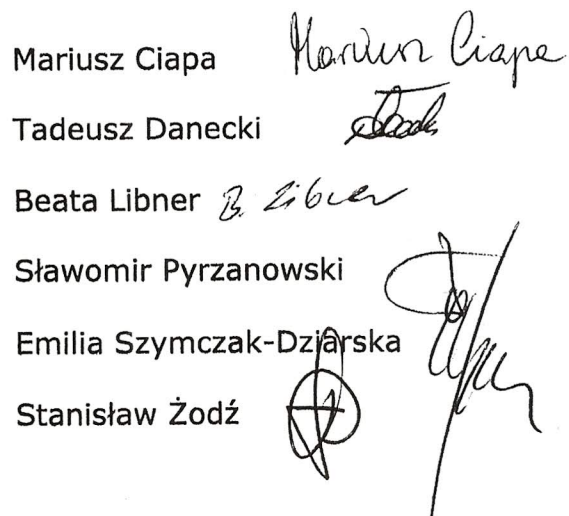 Mariusz Ciapa Mariusz Ciapa
Tadeusz Danecki
Beata Libner B. Libner
Sławomir Pyrzanowski
Emilia Szymczak-Dziarska
Stanisław Żodź